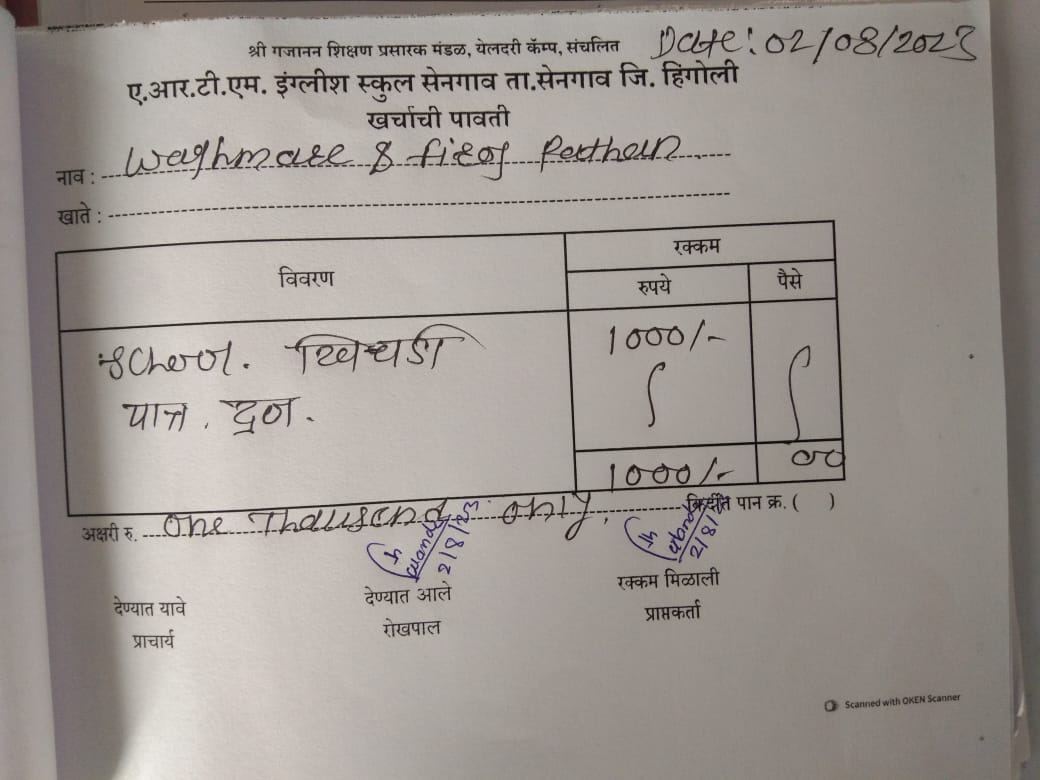 श्री गजानन शिक्षण प्रसारक मंडळ, येलदरी कॅम्प, संचलित Date: 02/08/2023
ए.आर.टी.एम. इंग्लीश स्कुल सेनगाव ता.सेनगाव जि. हिंगोली
खर्चाची पावती
नाव : Waghmare & firoj Pathan
खाते :
विवरण रक्कम
रुपये पैसे
School. खिचडी 1000/-
पात्र. द्रन.
1000/- 00
अक्षरी रु. One Thausand only. किर्दीत पान क्र. ( )
2/8/23 2/8/
देण्यात यावे देण्यात आले रक्कम मिळाली
प्राचार्य रोखपाल प्राप्तकर्ता
Scanned with OKEN Scanner